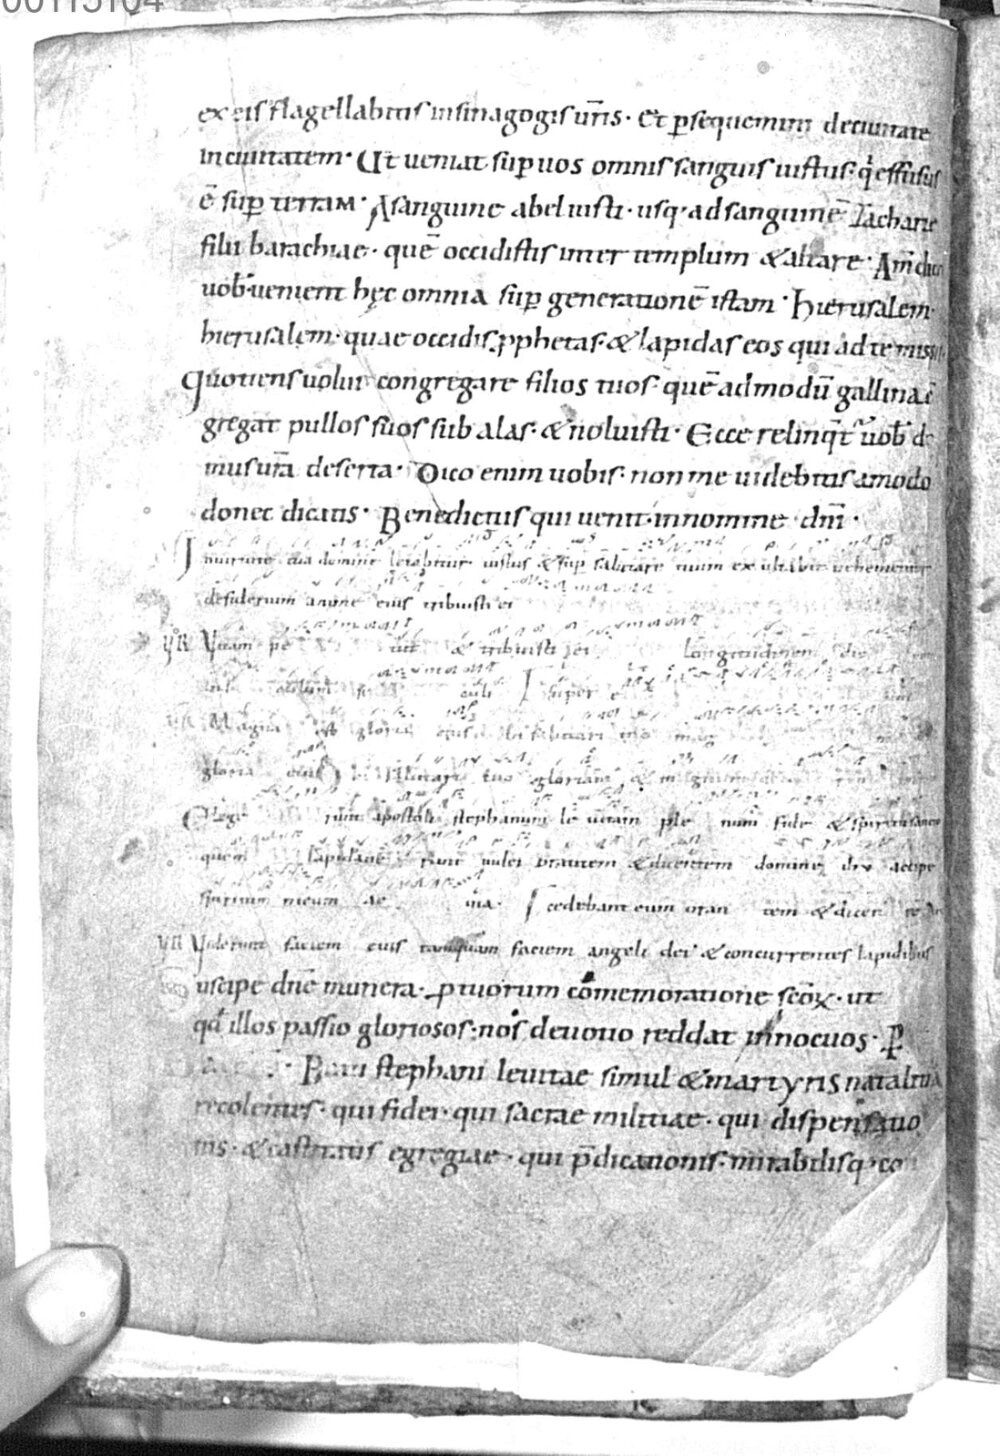 00115104
ex eis flagellabitis in sinagogis ur̄is · Et ꝑsequemini de ciuitate
in ciuitatem · Ut ueniat suꝑ uos omnis sanguis iustus · q̇ effusus
ē suꝑ terram · A sanguine abel iusti · usq· ad sanguinē Zacharię
filii barachiae · quē occidistis inter templum & altare · Am̄ dico
uob̄ · uenient hęc omnia suꝑ generationē istam · Hierusalem
hierusalem · quae occidis ꝓphetas · & lapidas eos qui ad te missi
Quotiens uolui congregare filios tuos · quē ad modū gallina c̄
gregat pullos suos sub alas · & noluisti · Ecce relinq̄t uob̄ do
mus ur̄a deserta · Dico enim uobis · non me uidebitis amodo
donec dicatis · Benedictus qui uenit · in nomine dn̄i ·
In uirtute tua domine letabitur iustus & suꝑ salutare tuum exultabit uehementer
desiderium anime eius tribuisti ei
VR Vitam pe tiit & tribuisti ei longitudinem
super
VR Magna est gloria eius
gloria eius salutari tuo gloriam &
Elege runt apostoli stephanum le uitam ple num fide & spiritu sancto
quem lapidaue runt iudei orantem & dicentem domine ihu accipe
spiritum meum ae uia · cedebant eum oran tem & dicen tē
VR Viderunt faciem eius tamquam faciem angeli dei & concurrentes lapidibus
Suscipe dn̄e munera · ꝓ tuorum cōmemoratione sc̄oꝝ · ut
qd̄ illos passio gloriosos · nos deuotio reddat innocuos · P̄
Beati stephani leuitae simul & martyris natalitia
recolentes · qui fidei · qui sacrae militiae · qui dispensatio
nis · & castitatis egregiae · qui p̄dicationis · mirabilisq· con